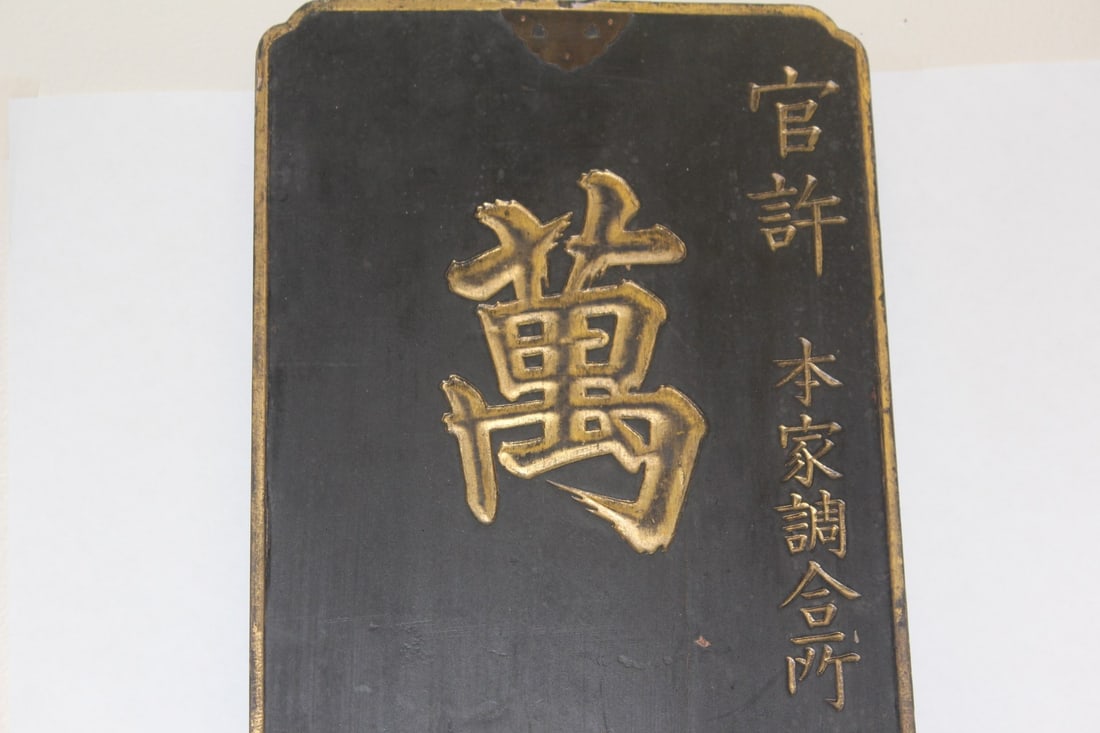 官許 本家調合所
萬